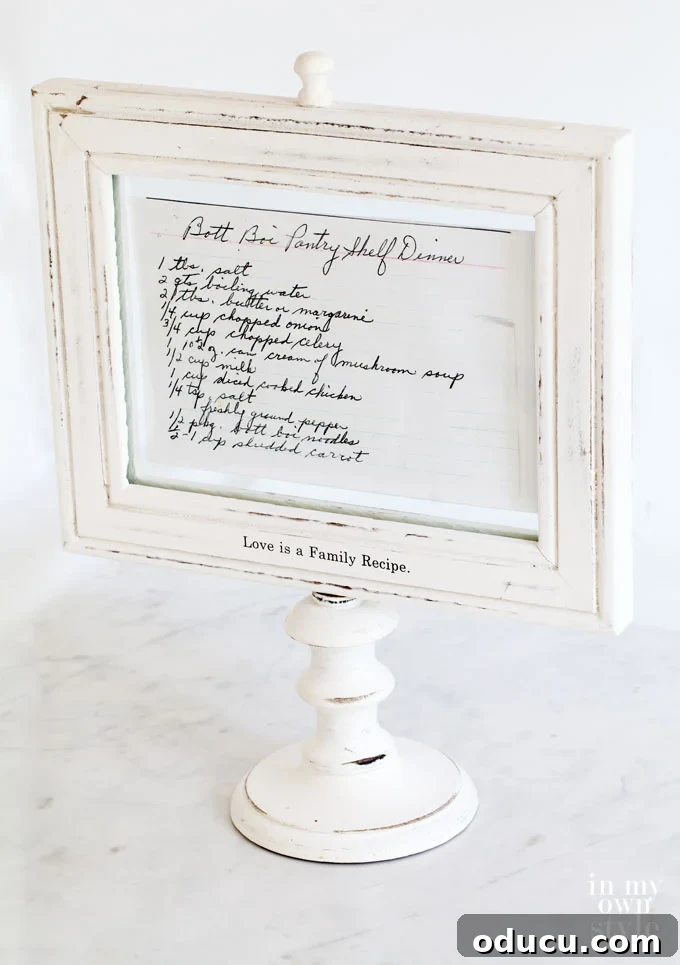 Bott Boi Pantry Shelf Dinner
1 tbs. salt
2 qts boiling water
2 tbs. butter or margarine
1/4 cup chopped onion
3/4 cup chopped celery
1 10½ oz. can cream of mushroom soup
1/2 cup milk
1 cup diced cooked chicken
1/4 tsp. salt
freshly ground pepper
1/2 pkg. bott boi noodles
½-1 cup shredded carrot
Love is a Family Recipe.
in my
own
style
oducu.com